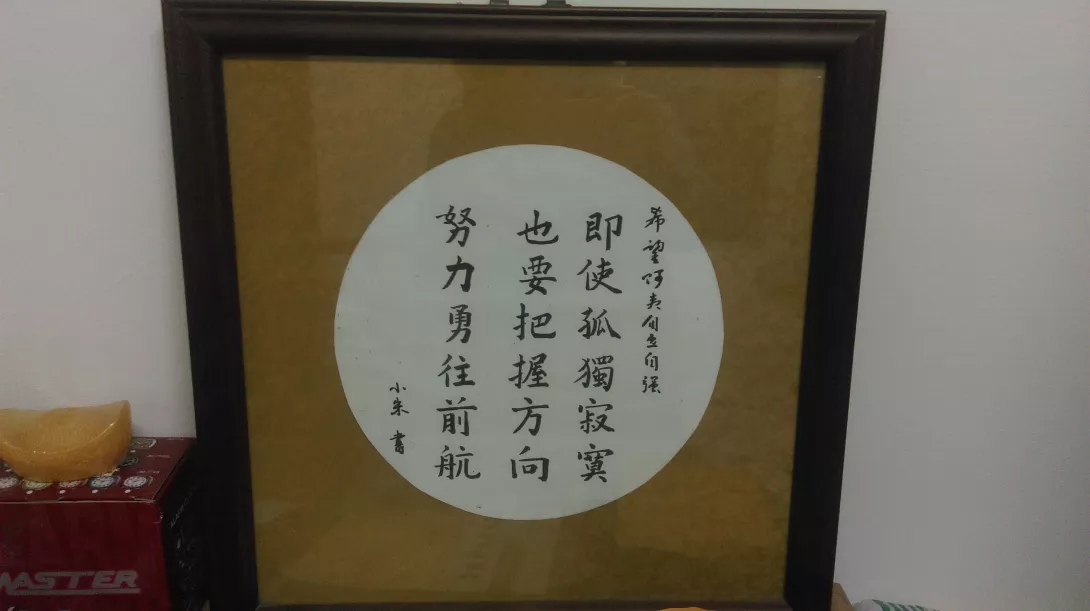 希望阿自立自强
即使孤獨寂寞
也要把握方向
努力勇往前航
小朱 書
MASTER